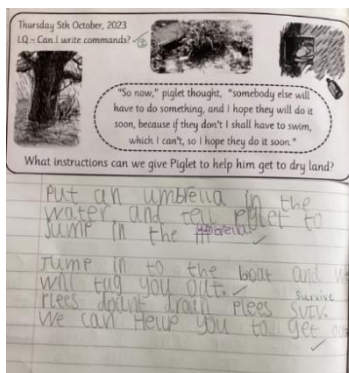 Thursday 5th October, 2023
LQ - Can I write commands?
"So now," piglet thought, "somebody else will
have to do something, and I hope they will do it
soon, because if they don't I shall have to swim,
which I can't, so I hope they do it soon."
What instructions can we give Piglet to help him get to dry land?
Put an umbrella in the
water and tell piglet to
Jump in the umbrella
Jump in to the boat and
will tug you out.
survive
Plees doant drain Plees SUIV.
We can Helve you to get